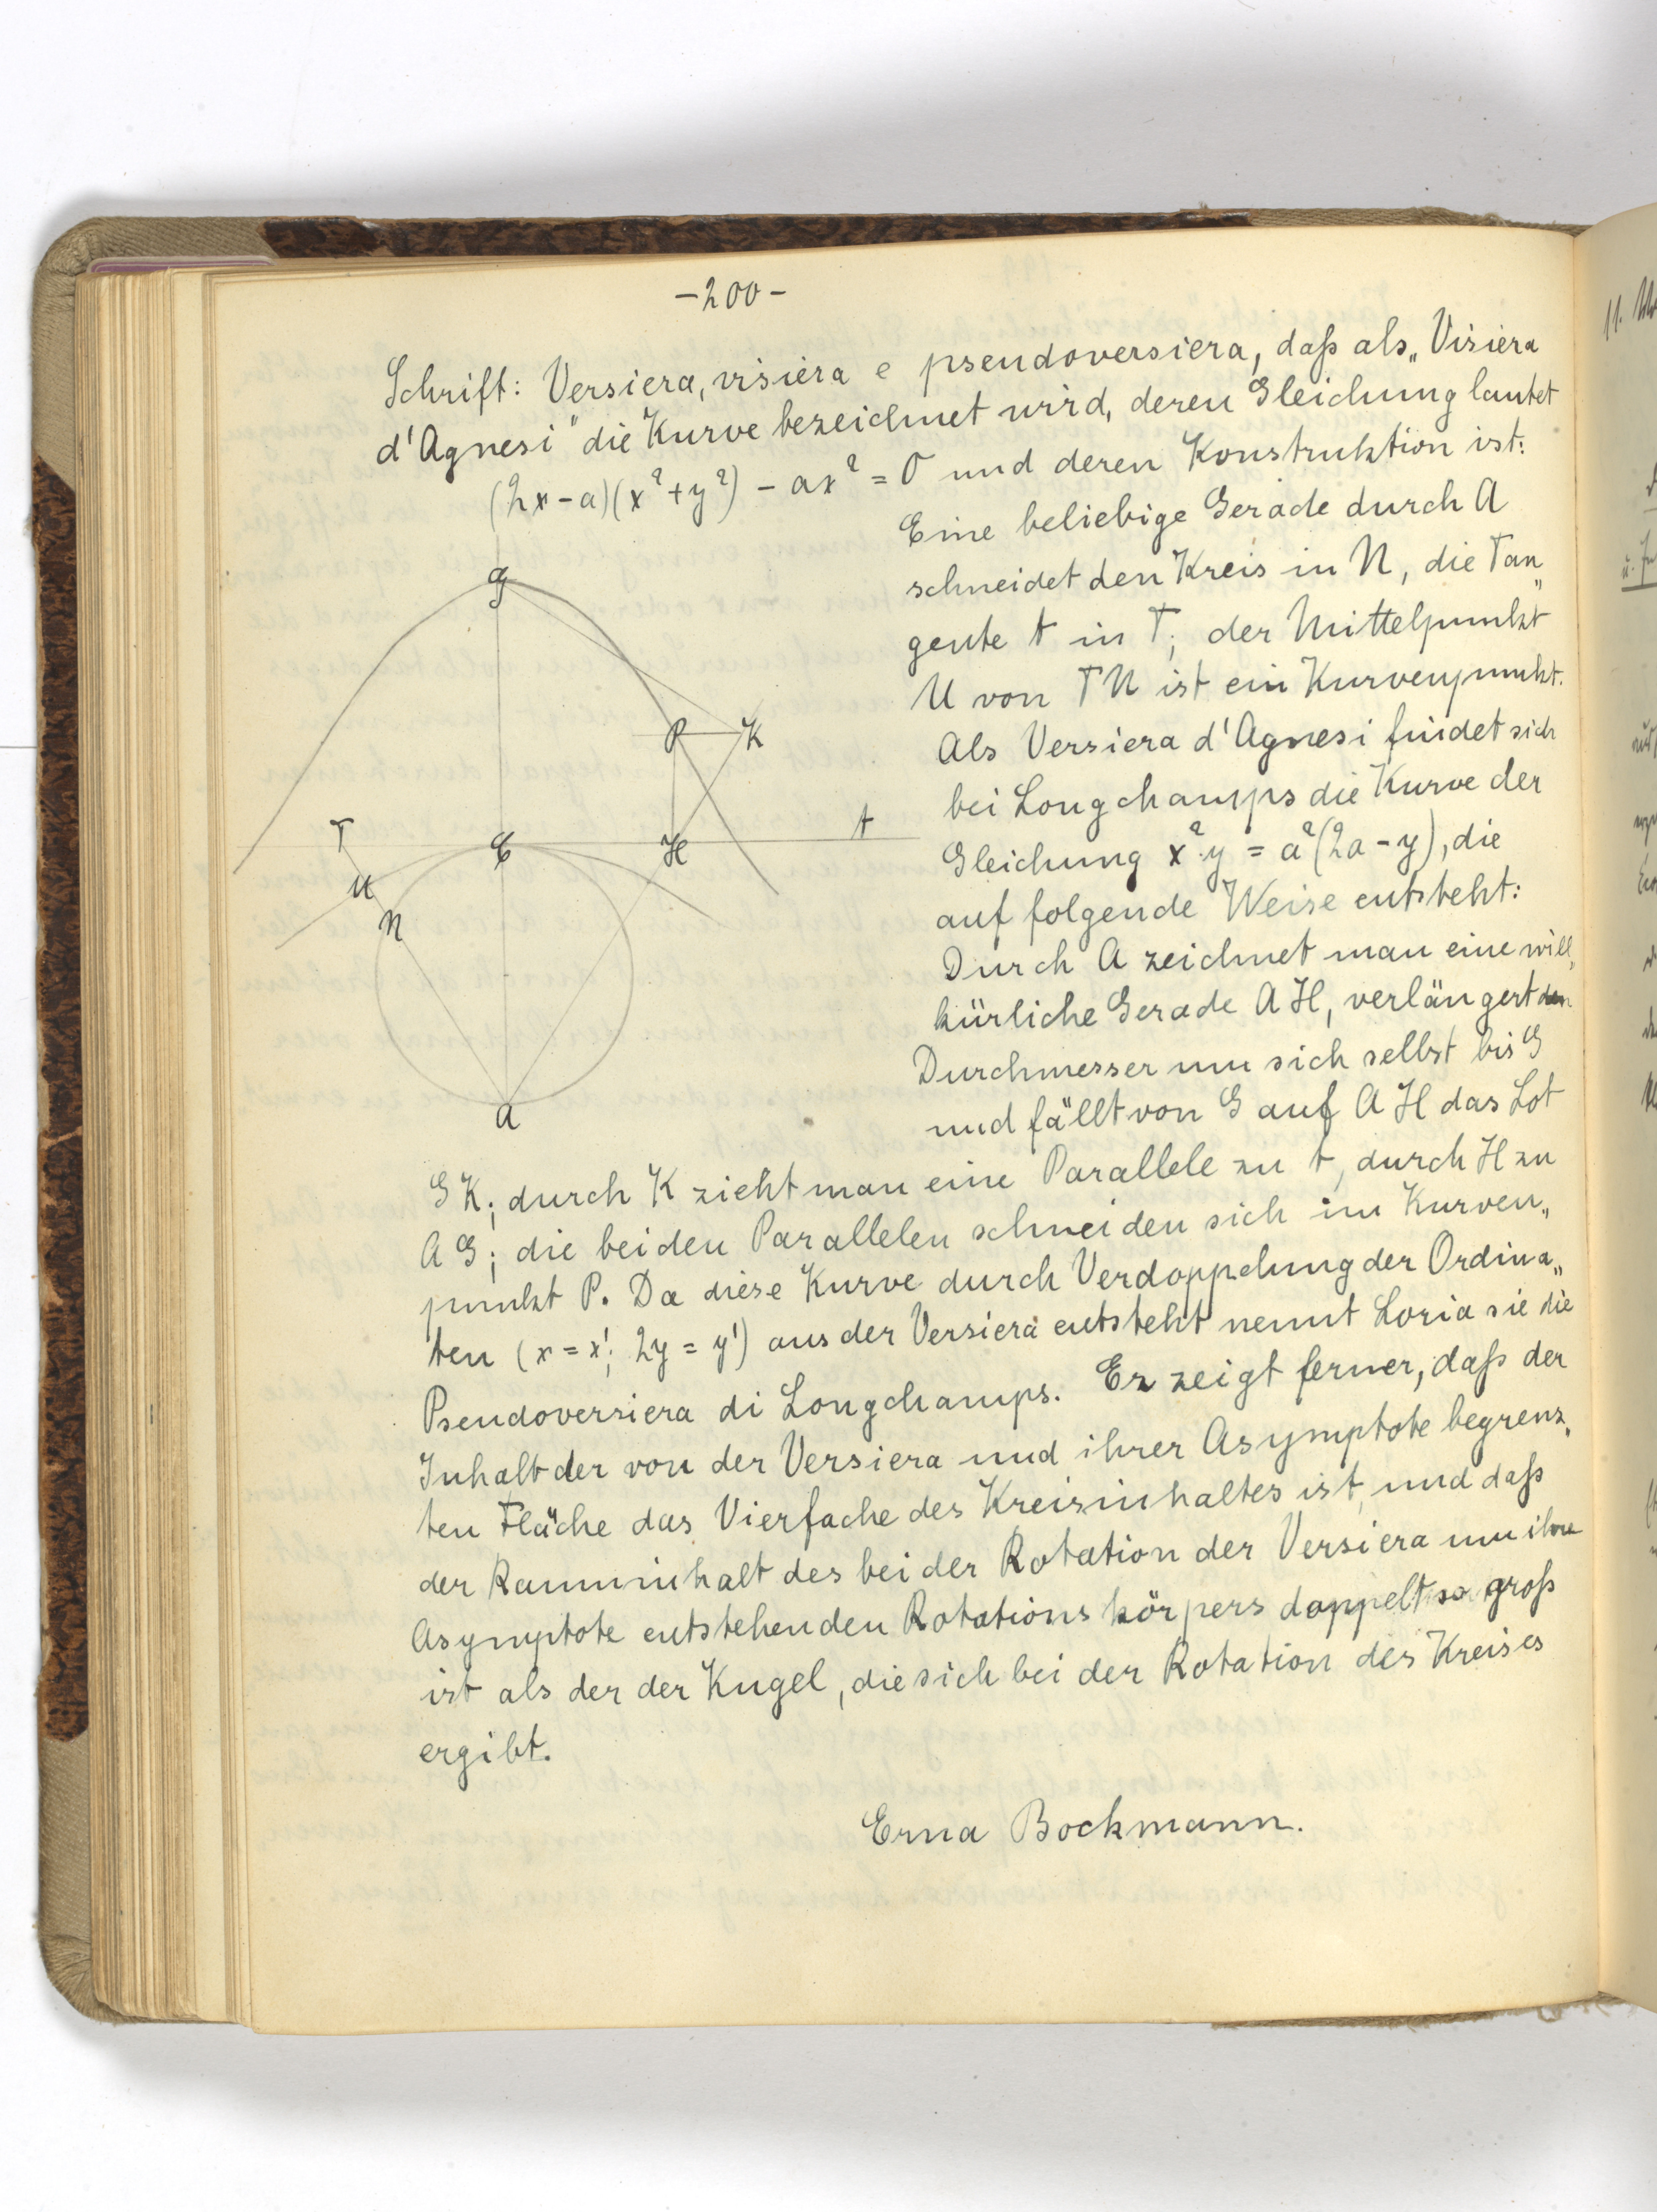 -200-
Schrift: Versiera, visiera e pseudoversiera, daß als „Visiera
d'Agnesi" die Kurve bezeichnet wird, deren Gleichung lautet
(2x-a)(x²+y²) - ax² = 0 und deren Konstruktion ist:
Eine beliebige Gerade durch A
schneidet den Kreis in N, die Tan„
gente t in T; der Mittelpunkt
U von TN ist ein Kurvenpunkt.
Als Versiera d'Agnesi findet sich
bei Longchamps die Kurve der
Gleichung x²·y = a²(2a-y), die
auf folgende Weise entsteht:
Durch A zeichnet man eine will„
kürliche Gerade AH, verlängert den
Durchmesser um sich selbst bis G
und fällt von G auf AH das Lot
GK; durch K zieht man eine Parallele zu t, durch H zu
AG; die beiden Parallelen schneiden sich im Kurven„
punkt P. Da diese Kurve durch Verdoppelung der Ordina„
ten (x = x'; 2y = y') aus der Versiera entsteht nennt Loria sie die
Pseudoversiera di Longchamps. Er zeigt ferner, daß der
Inhalt der von der Versiera und ihrer Asymptote begrenz„
ten Fläche das Vierfache des Kreisinhaltes ist, und daß
der Rauminhalt des bei der Rotation der Versiera um ihre
Asymptote entstehenden Rotationskörpers doppelt so groß
ist als der der Kugel, die sich bei der Rotation des Kreises
ergibt.
Erna Bockmann.
G
P K
T E H t
U
N
A
11.